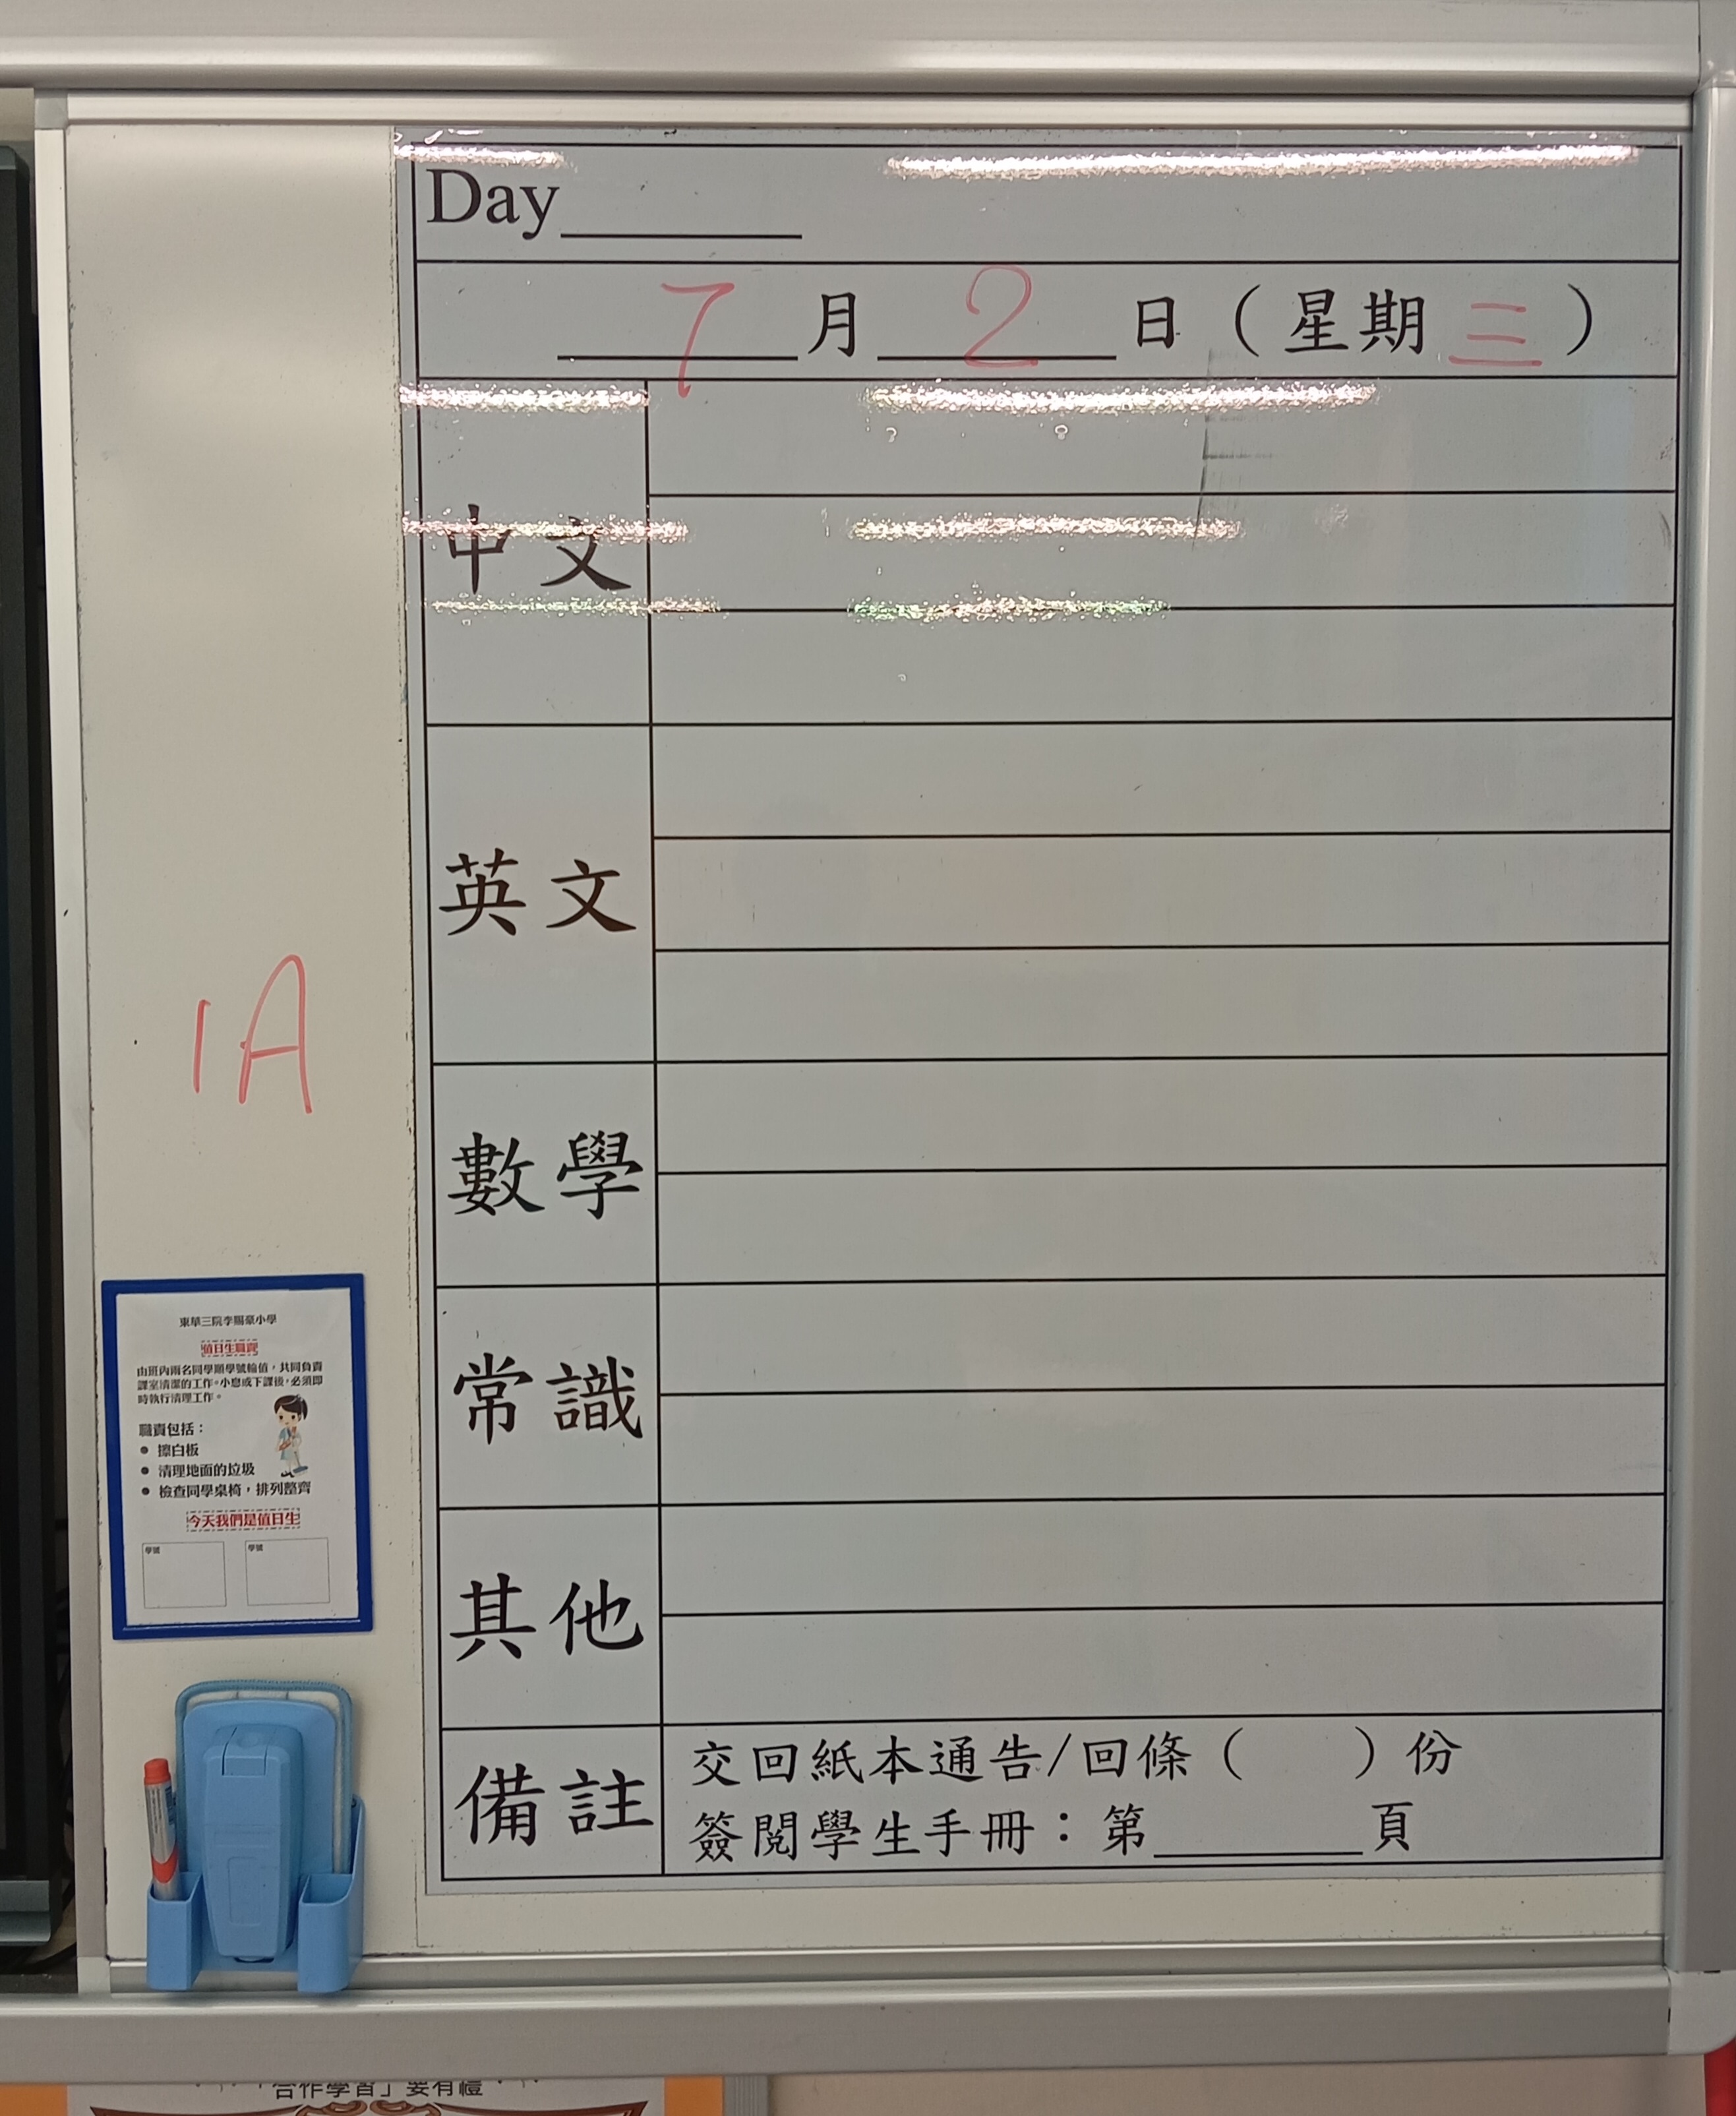 Day
7月2日（星期三）
中文
英文
數學
常識
其他
備註
交回紙本通告/回條（　　）份
簽閱學生手冊：第　　頁
1A
東華三院李賜豪小學
值日生職責
由班內兩名同學順學號輪值，共同負責
課室清潔的工作。小息或下課後，必須即
時執行清理工作。
職責包括：
● 擦白板
● 清理地面的垃圾
● 檢查同學桌椅，排列整齊
今天我們是值日生
學號 學號
「合作學習」要有禮